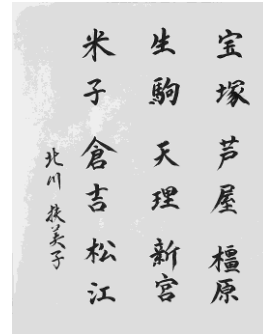 宝塚 芦屋 橿原
生駒 天理 新宮
米子 倉吉 松江
北川 扶美子